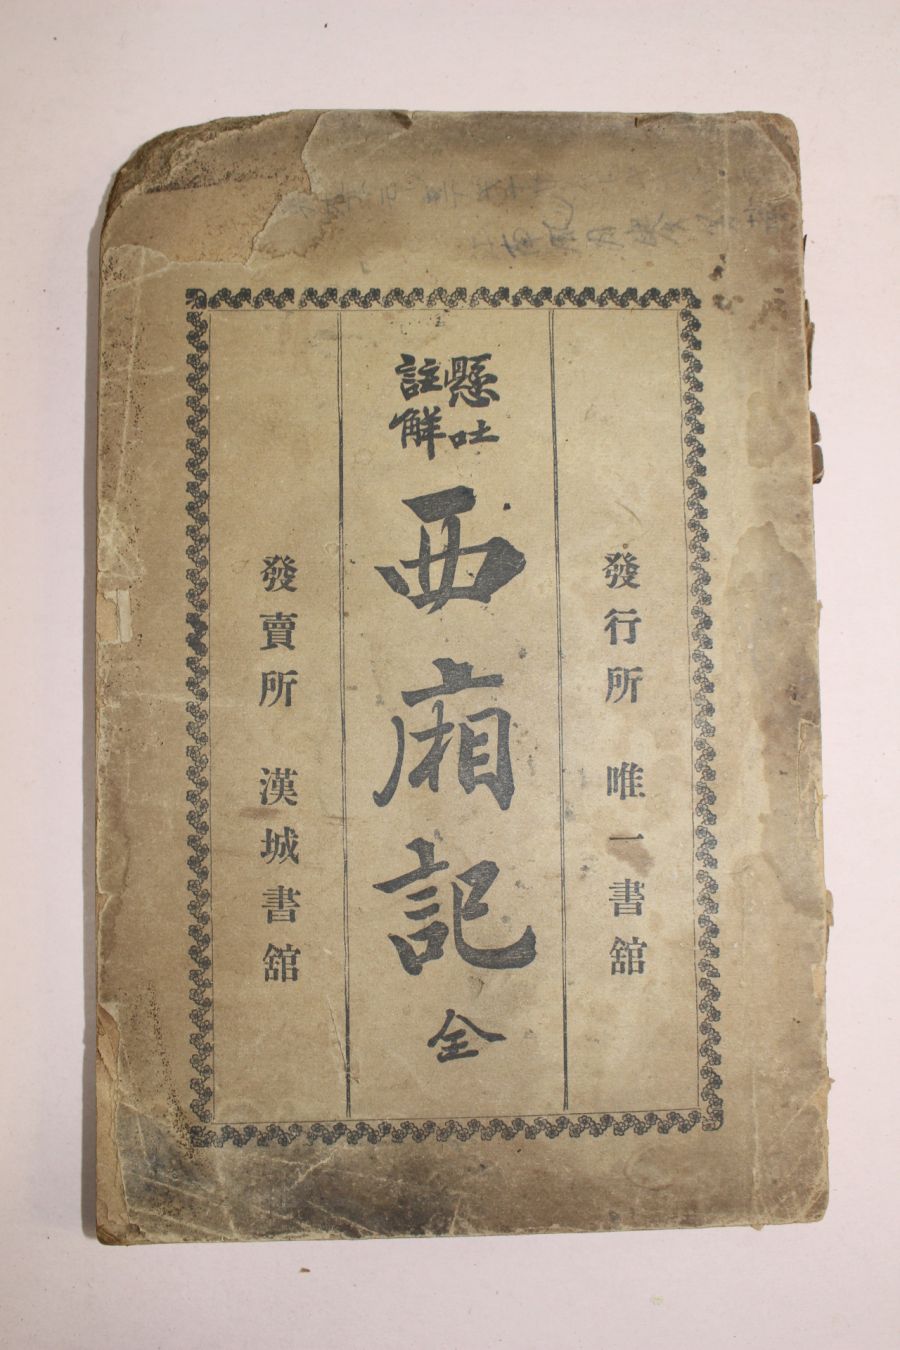 發行所 唯一書舘
懸吐
註解
西廂記 全
發賣所 漢城書舘